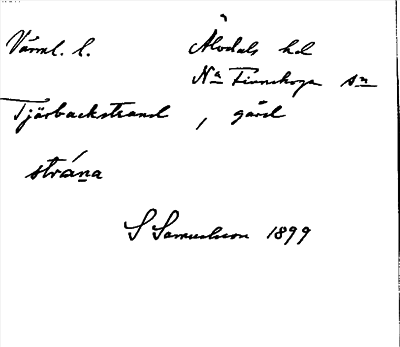 Värml. l. Älvdals hd
Na Finnskoga sn
Tjärbackstrand , gård
strána
S Samuelsson 1899